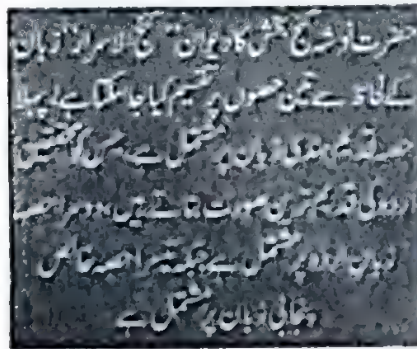 حضرت نوشہ گنج بخش کا دیوان "گنج الاسرار" زبان
کے لحاظ سے تین حصوں پر تقسیم کیا جا سکتا ہے، پہلا
حصہ قدیم ہندی زبان پر مشتمل ہے جس کو محققین
اردو کی قدیم ترین صورت بتاتے ہیں، دوسرا حصہ
زبان اردو پر مشتمل ہے جبکہ تیسرا حصہ خالص
پنجابی زبان پر مشتمل ہے